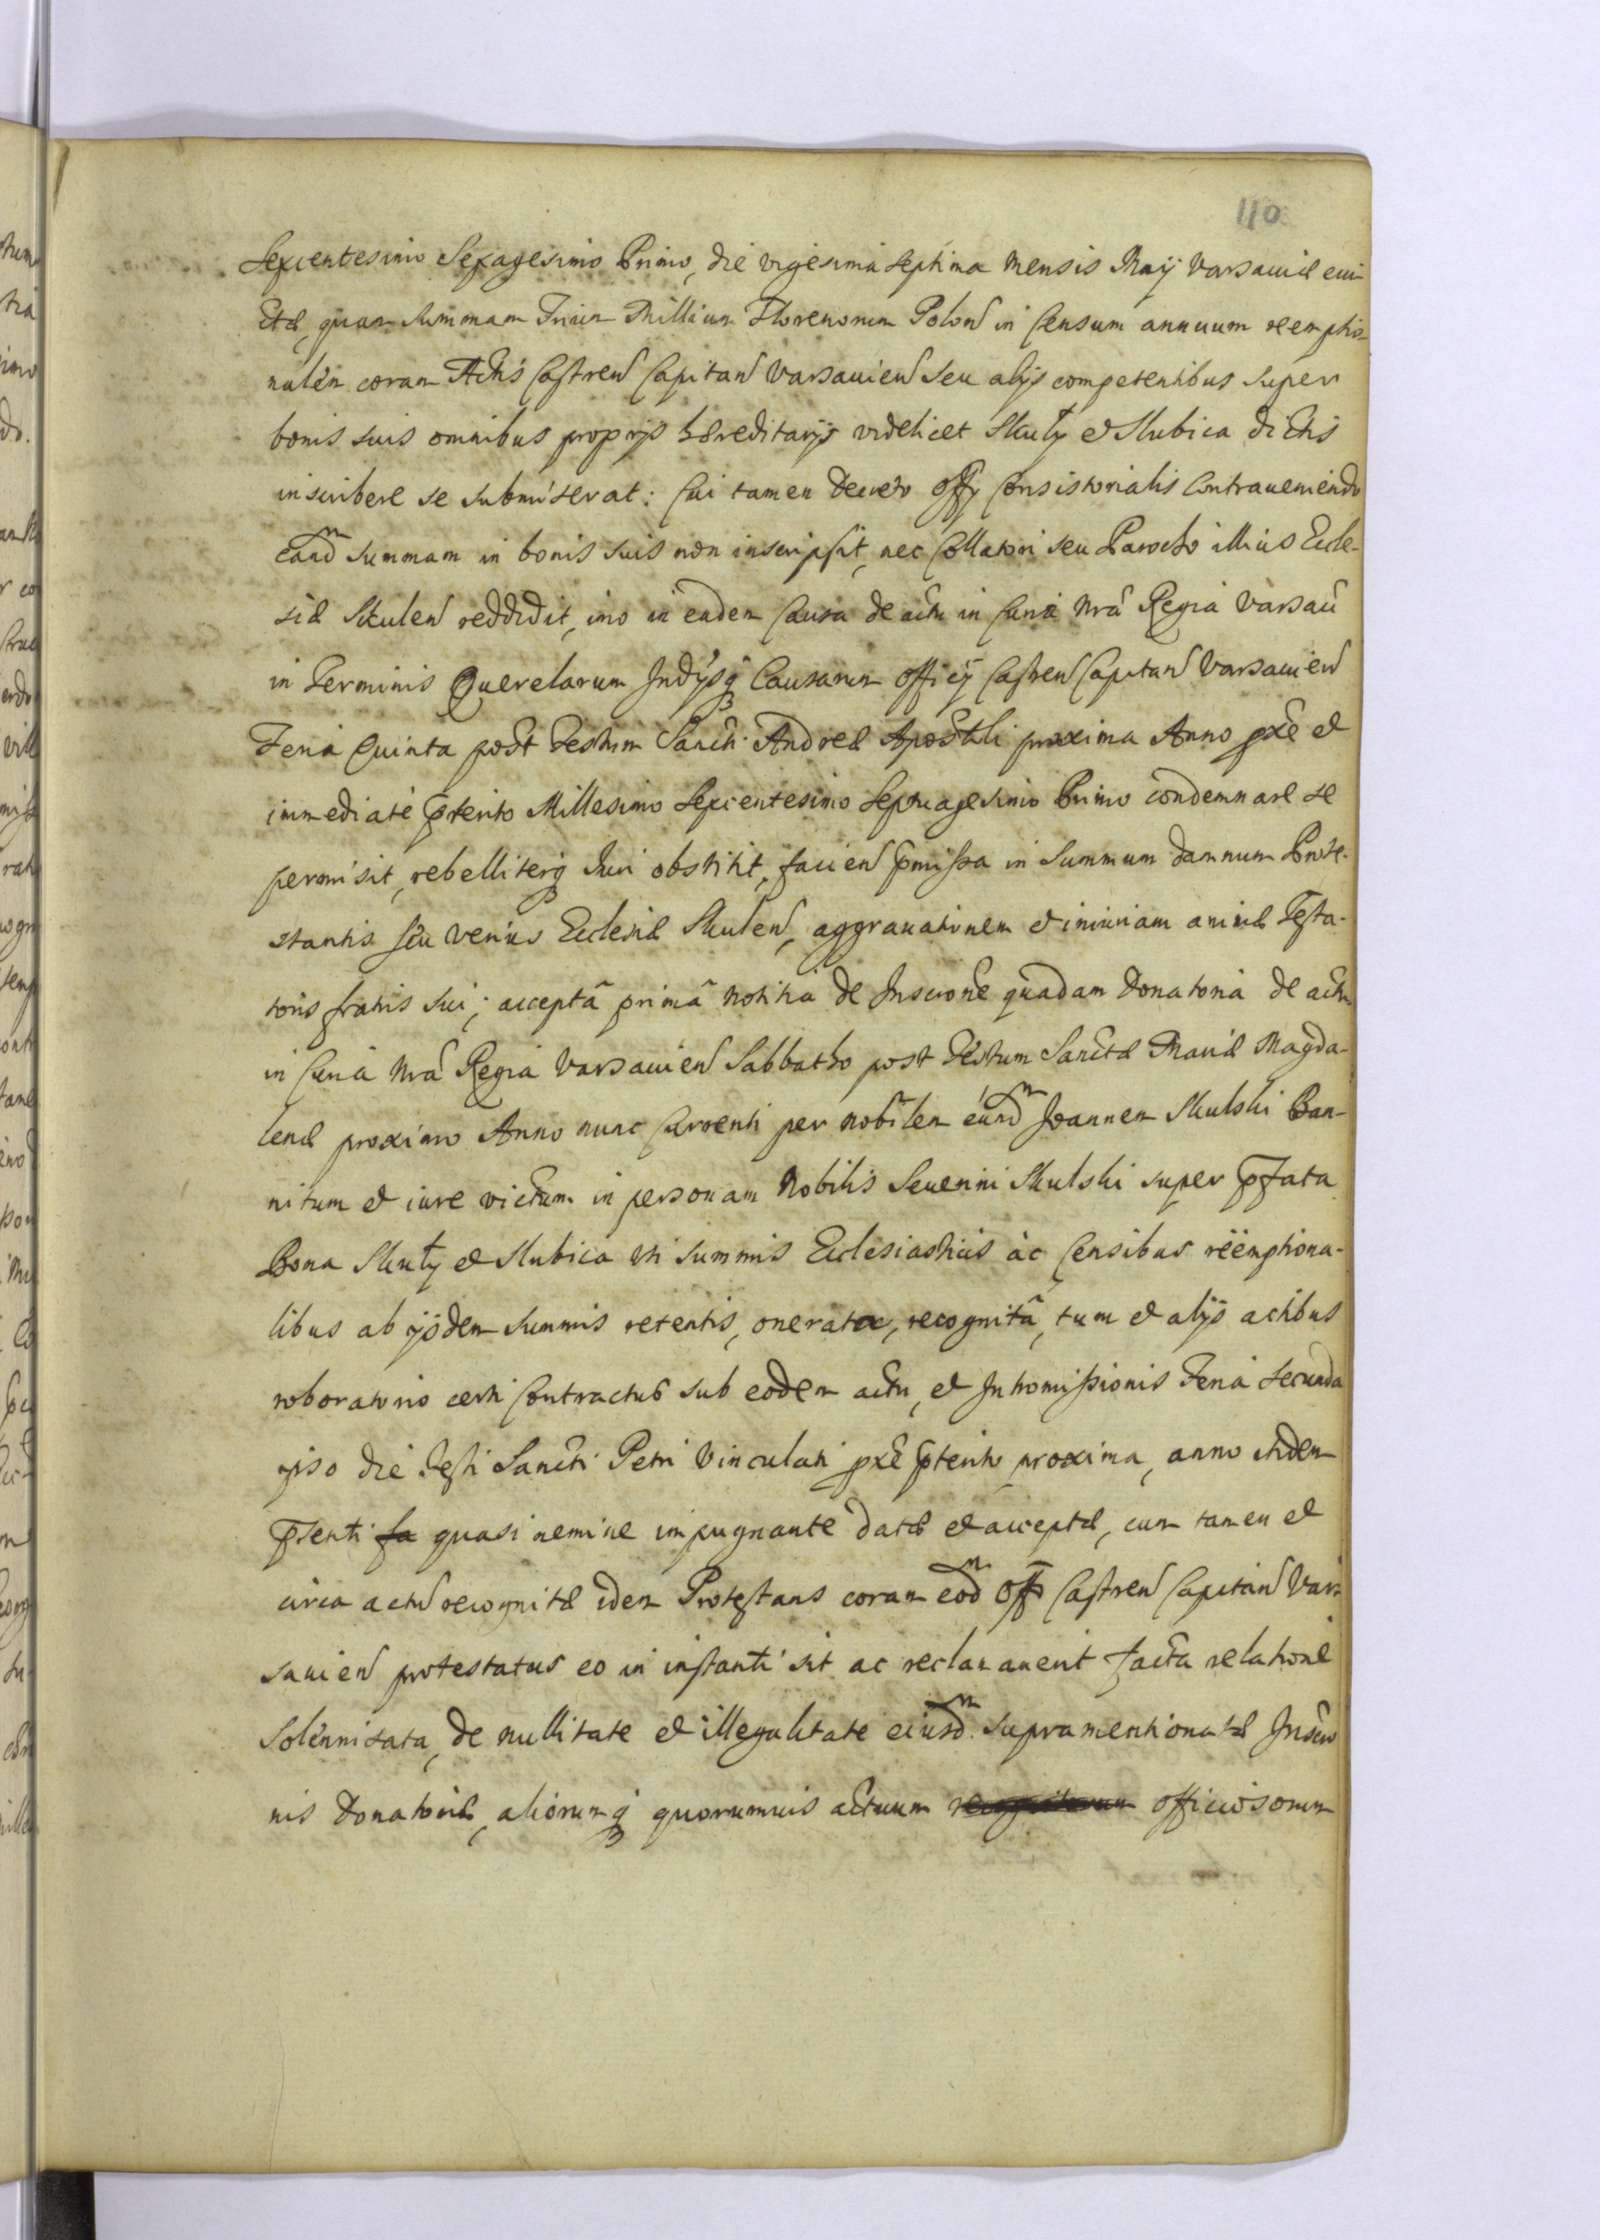 110
Sexcentesimo Sexagesimo Primo, die vigesima septima Mensis Maÿ Varsauiæ eui-
ctæ, quam summam Trium Millium Florenorum Polon in Censum annuum reemptio-
nalem coram Actis Castren Capitan Varsauien seu alijs competentibus super
bonis suis omnibus proprijs hæreditarijs videlicet Skuły et Słubica dictis
inscribere se submiserat: Cui tamen Decreto Offÿ Consistorialis Contraueniendo
eandm summam in bonis suis non inscripsit, nec Collatori seu Parocho illius Eccle-
siæ Skulen reddidit, imo in eadem Causa de actu in Curia Nrâ Regia Varsauien
in Terminis Querelarum Indÿsq Causarum Officij Castren Capitan Varsauien
Feria Quinta post Festum Sancti Andreæ Apostoli proxima Anno pxe et
immediatè pterito Millesimo Sexcentesimo Septuagesimo Primo condemnare se
permisit, rebelliterq Iuri obstitit, facien pmissa in Summum damnum Prote-
stantis seu verius Ecclesiæ Skulen, aggrauationem et iniuriam animæ Testa-
toris fratris sui; acceptâ primâ notitia de Inscrone quadam Donatoria de actu
in Curia Nrâ Regia Varsauien Sabbatho post Festum Sanctæ Mariæ Magda-
lenæ proximo Anno nunc Currenti per Nobilem eundm Joannem Skulski Ban-
nitum et iure victum in personam Nobilis Seuerini Skulski super pfata
Bona Skuły et Słubica uti summis Ecclesiasticis ac Censibus reemptiona-
libus ab ijsdem summis retentis, onerata, recognitâ, tum et alijs actibus
roboratorio certi Contractus sub eodem actu, et Intromissionis Feria secunda
ipso die Festi Sancti Petri Vinculati pxe pterito proxima, anno itidem
psenti fa quasi nemine impugnante datæ et acceptæ, cum tamen et
circa actu recognitæ idem Protestans coram eodm Off Castren Capitan Var-
sauien protestatus eo in instanti sit ac reclamauerit facta relatione
solennisata, de nullitate et illegalitate eiusdm supramentionatæ Inscrio-
nis Donatoriæ, aliorumq quorumuis actuum recognitorum officiosorum